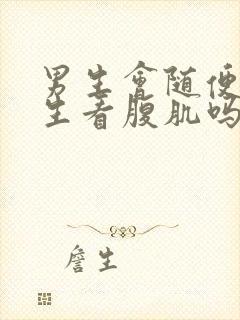 男生会随便
生看腹肌吗
詹生